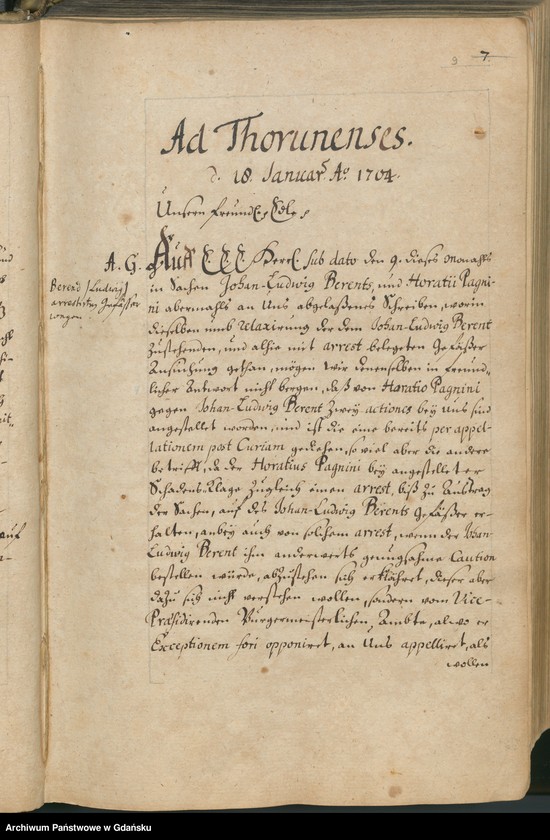 9 7.
Ad Thorunenses.
d. 18. Januar. Ao 1704.
Unsern freundl. Edle,
A. G. Auff E E E Herrl. sub dato den 9. dieses Monahts
Berend /Ludwig/
arrestirten Gefässer
wegen
in Sachen Johan-Ludwig Berents, und Horatii Pagni-
ni abermahls an Uns abgelaßenes Schreiben, worin
dieselben umb Relaxirung der dem Johan-Ludwig Berent
zustehenden, und alhie mit arrest belegten Gefässer
Ansuchung gethan, mögen wir denenselben in freund-
licher Antwort nicht bergen, daß von Horatio Pagnini
gegen Johan-Ludwig Berent zwey actiones bey Uns sind
angestellet worden, und ist die eine bereits per appel-
lationem post Curiam gediehen, so viel aber die andere
betrifft, da der Horatius Pagnini bey angestellter
Schadens-Klage zugleich einen arrest, biß zu Austrag
der Sachen, auf des Johan-Ludwig Berents Gefässer er-
halten, anbey auch von solchem arrest, wenn der Johan-
Ludwig Berent ihm anderwerts genugsahme Caution
bestellen würde, abzustehen sich erklähret, dieser aber
dazu sich nicht verstehen wollen, sondern vom Vice-
Præsidirenden Bürgermeisterlichen Ambte, alwo er
Exceptionem fori opponiret, an Uns appelliret, als
wollen
Archiwum Państwowe w Gdańsku